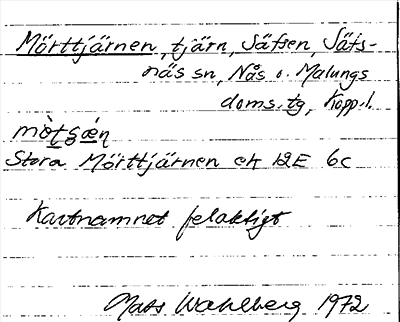 Mörttjärnen, tjärn, Säfsen, Säfs-
näs sn, Nås o. Malungs
doms. tg, Kopp. l.
Stora Mörttjärnen ek 12E 6c
Kartnamnet felaktigt
Mats Wahlberg 1972